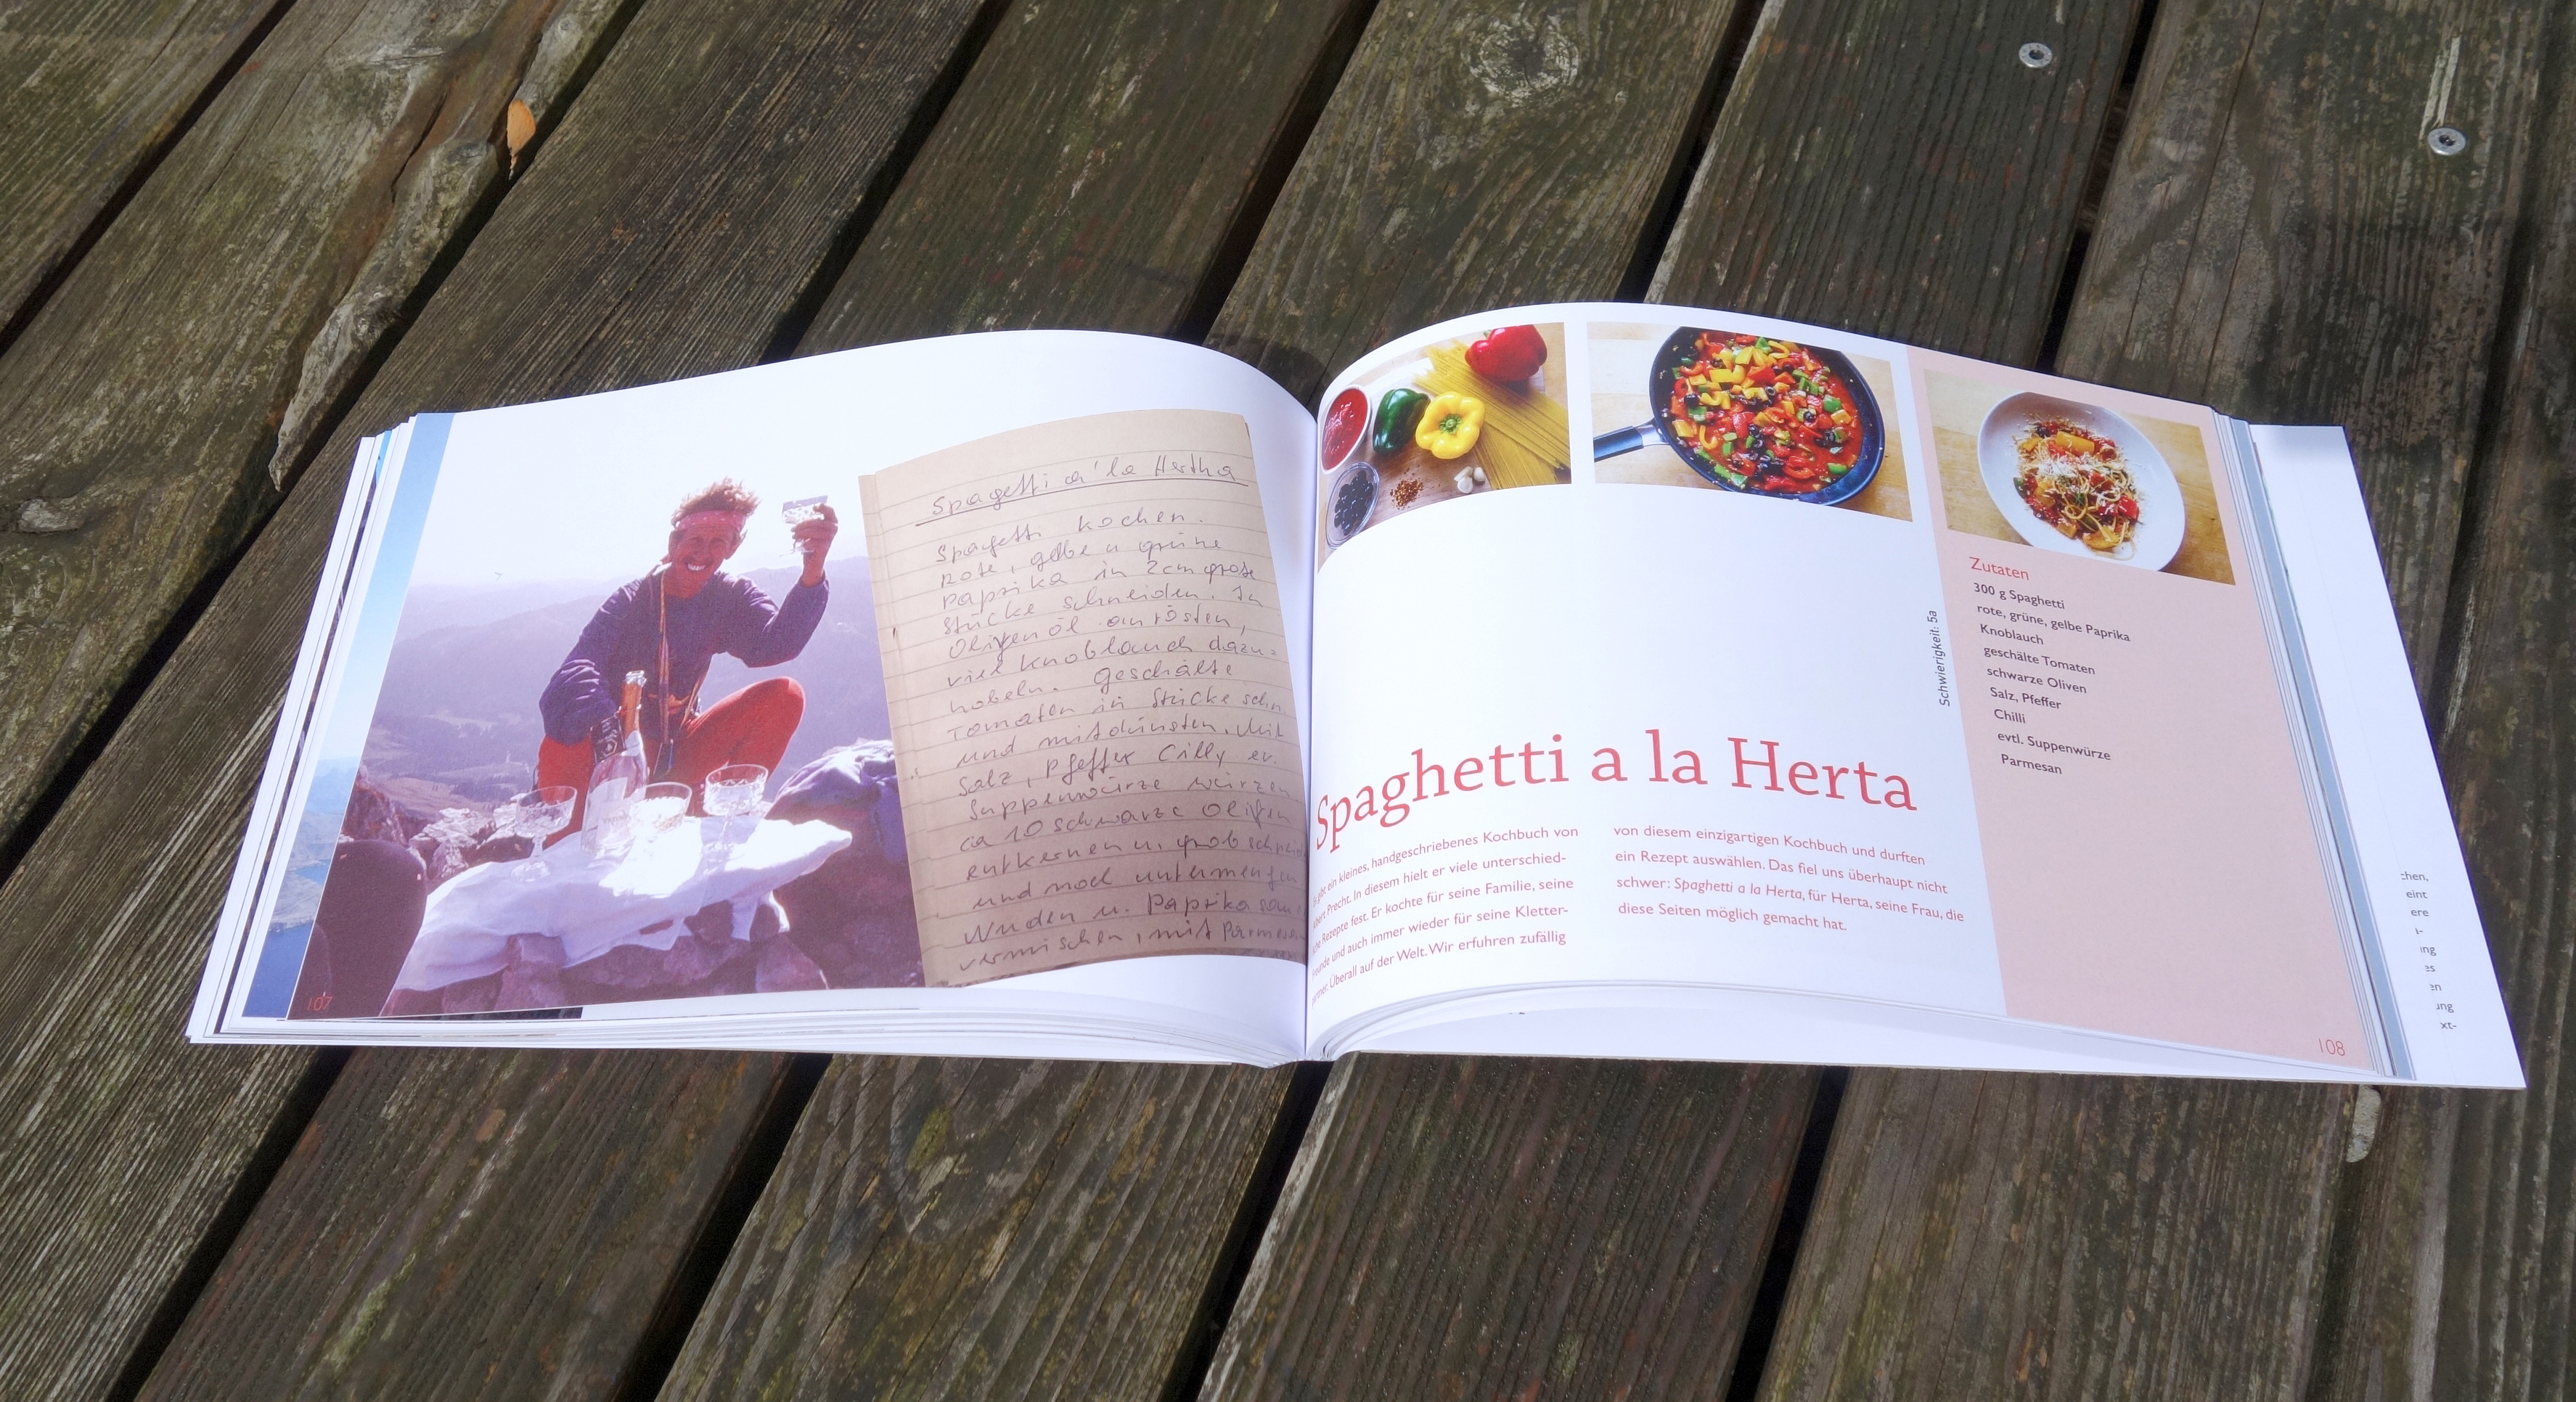 Spagetti a' la Hertha
Spagetti kochen.
Rote, gelbe u grüne
Paprika in 2cm große
Stücke schneiden. In
Olivenöl anrösten,
viel Knoblauch dazu-
hobeln. Geschälte
Tomaten in Stücke schn.
und mitdünsten. Mit
Salz, Pfeffer Cilly ev.
Suppenwürze würzen
ca 10 schwarze Oliven
entkernen u. grob
und noch untermengen
Nudeln u. Paprika
vermischen, mit
107
Spaghetti a la Herta
gibt ein kleines, handgeschriebenes Kochbuch von
Precht. In diesem hielt er viele unterschied-
Rezepte fest. Er kochte für seine Familie, seine
Freunde und auch immer wieder für seine Kletter-
partner. Überall auf der Welt. Wir erfuhren zufällig
von diesem einzigartigen Kochbuch und durften
ein Rezept auswählen. Das fiel uns überhaupt nicht
schwer: Spaghetti a la Herta, für Herta, seine Frau, die
diese Seiten möglich gemacht hat.
Schwierigkeit: 5a
Zutaten
300 g Spaghetti
rote, grüne, gelbe Paprika
Knoblauch
geschälte Tomaten
schwarze Oliven
Salz, Pfeffer
Chilli
evtl. Suppenwürze
Parmesan
108
chen,
eint
ere
ing
es
en
ung
xt-